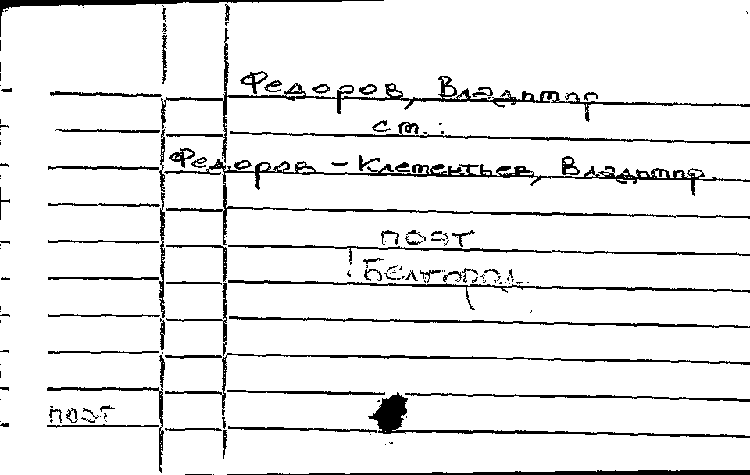 Федоров, Владимир
см.:
Федоров - Клементьев, Владимир.
поэт
! Белгород.
поэт